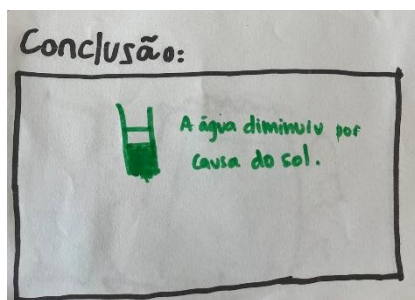 Conclusão:
A água diminuiu por
causa do sol.